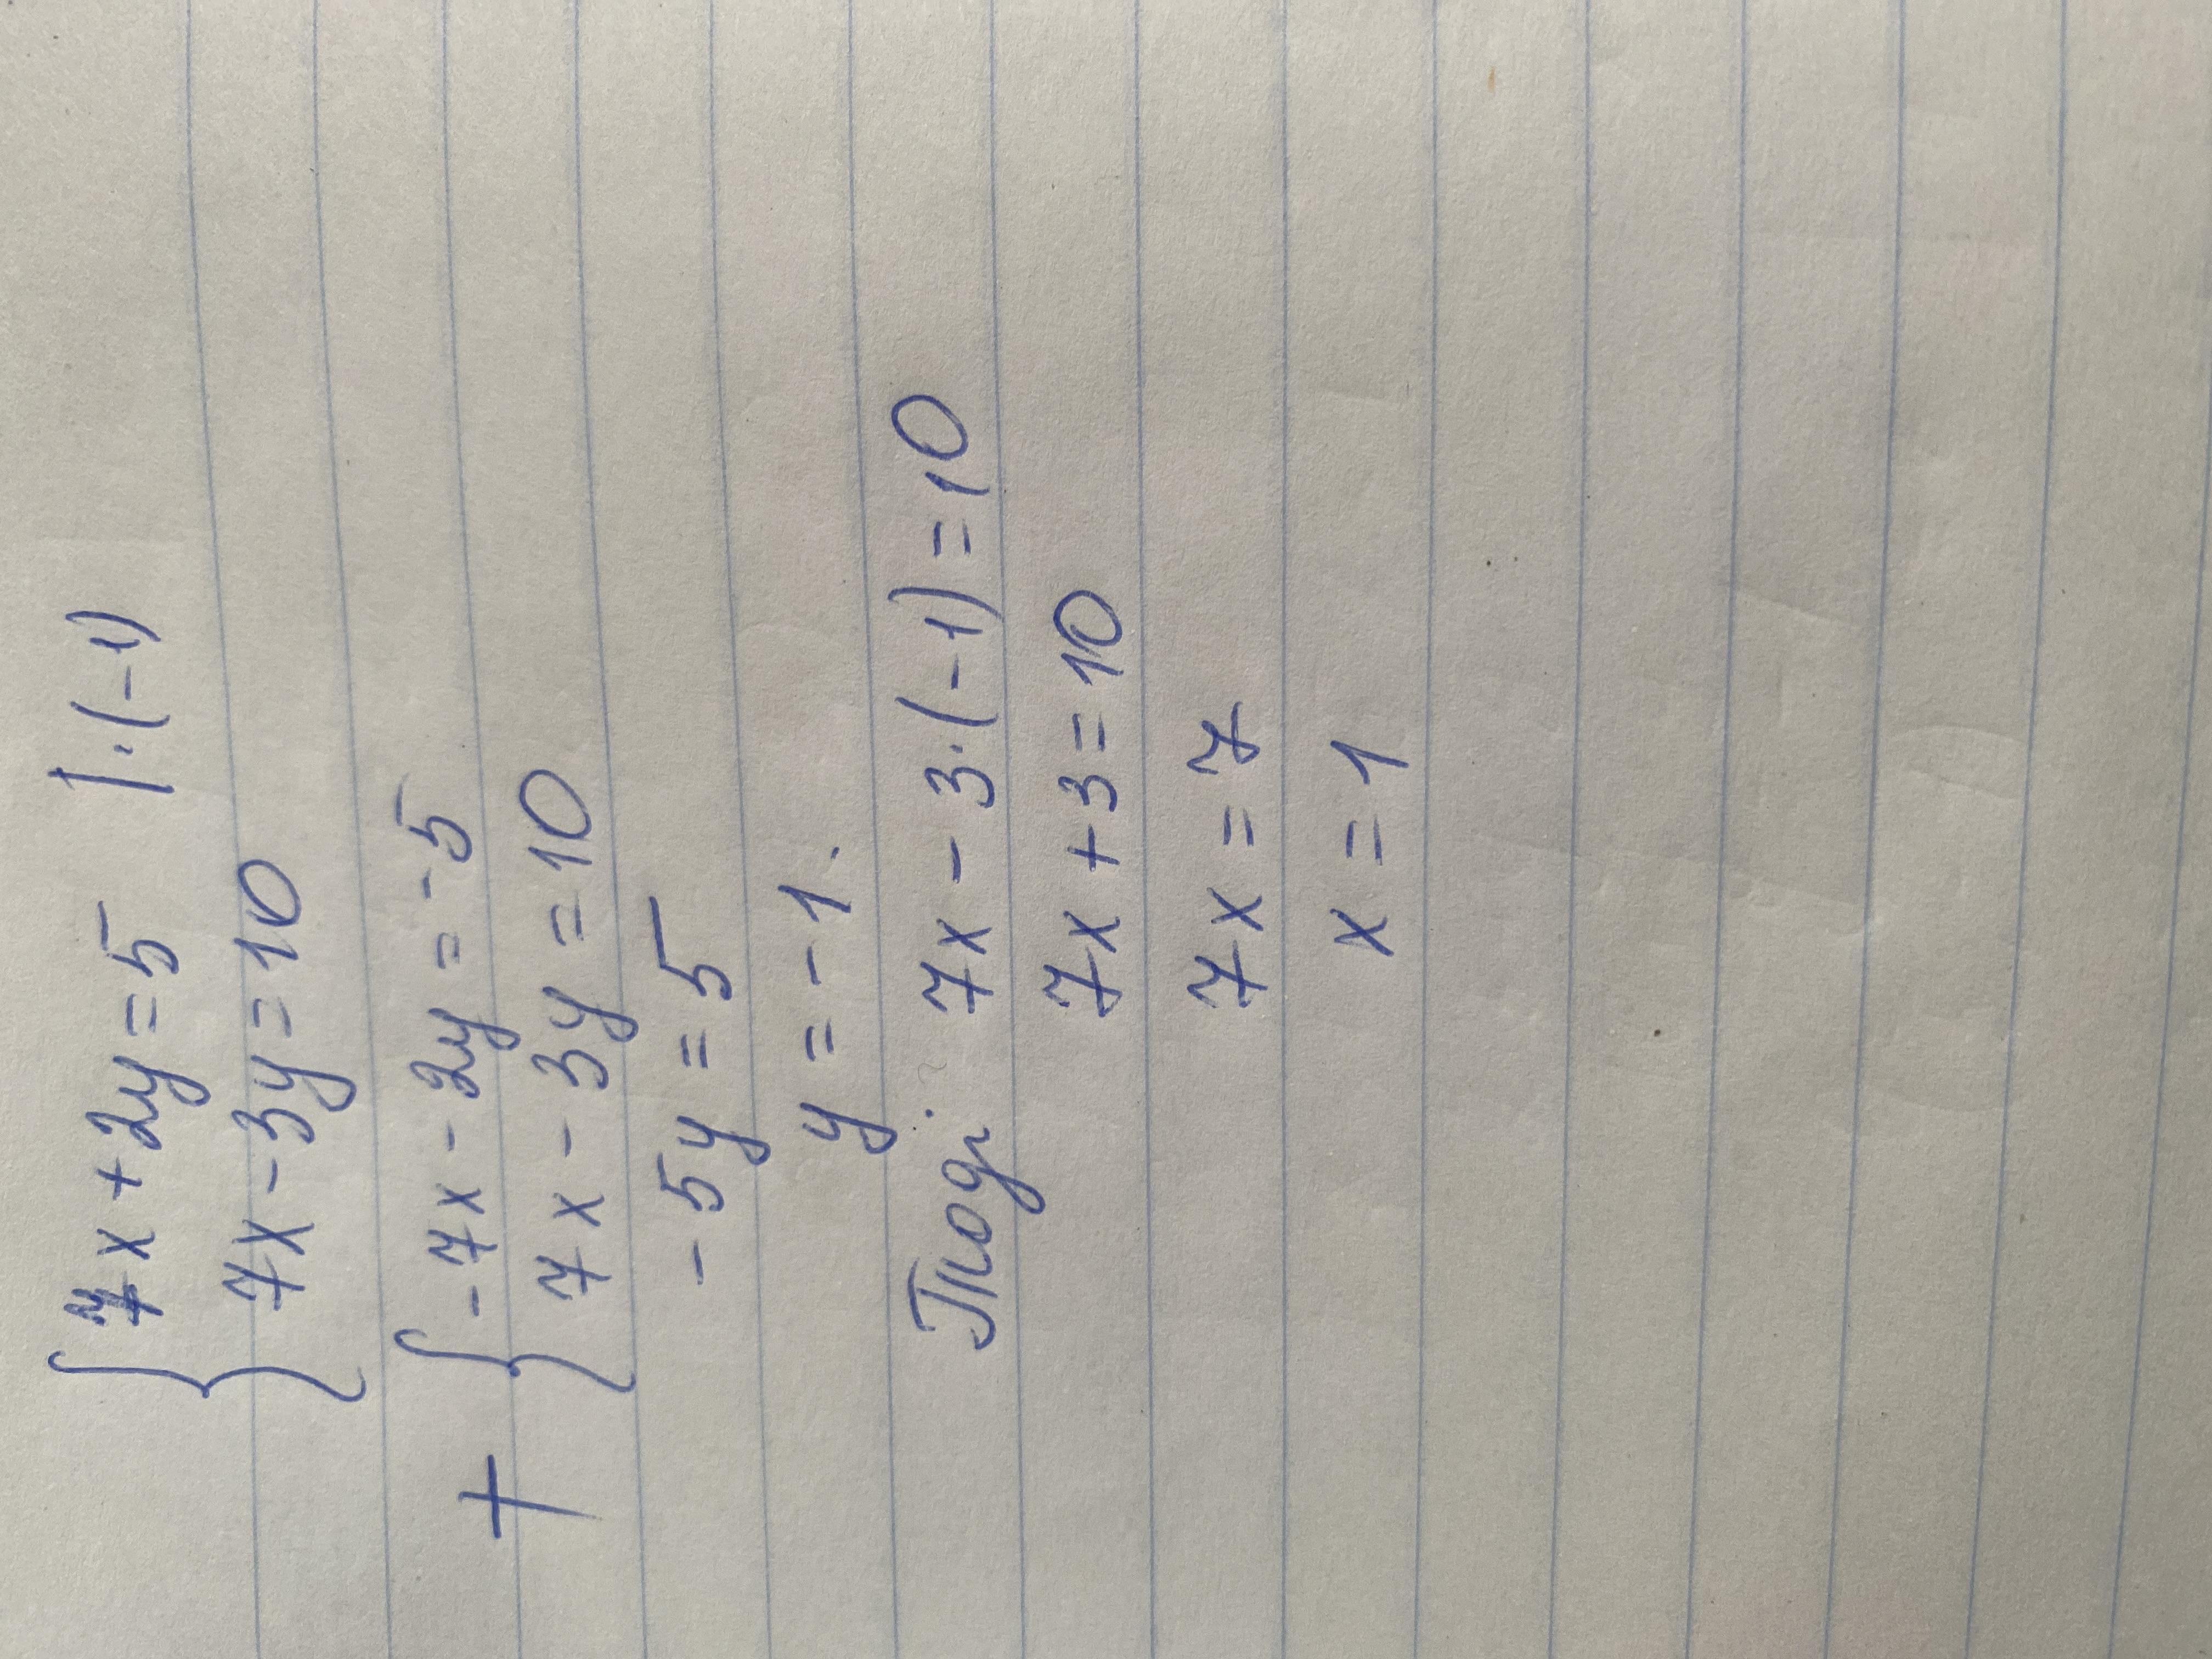 { 7x + 2y = 5 | · (-1)
7x - 3y = 10
+ { -7x - 2y = -5
7x - 3y = 10
-5y = 5
y = -1.
Тоді 7x - 3·(-1) = 10
7x + 3 = 10
7x = 7
x = 1